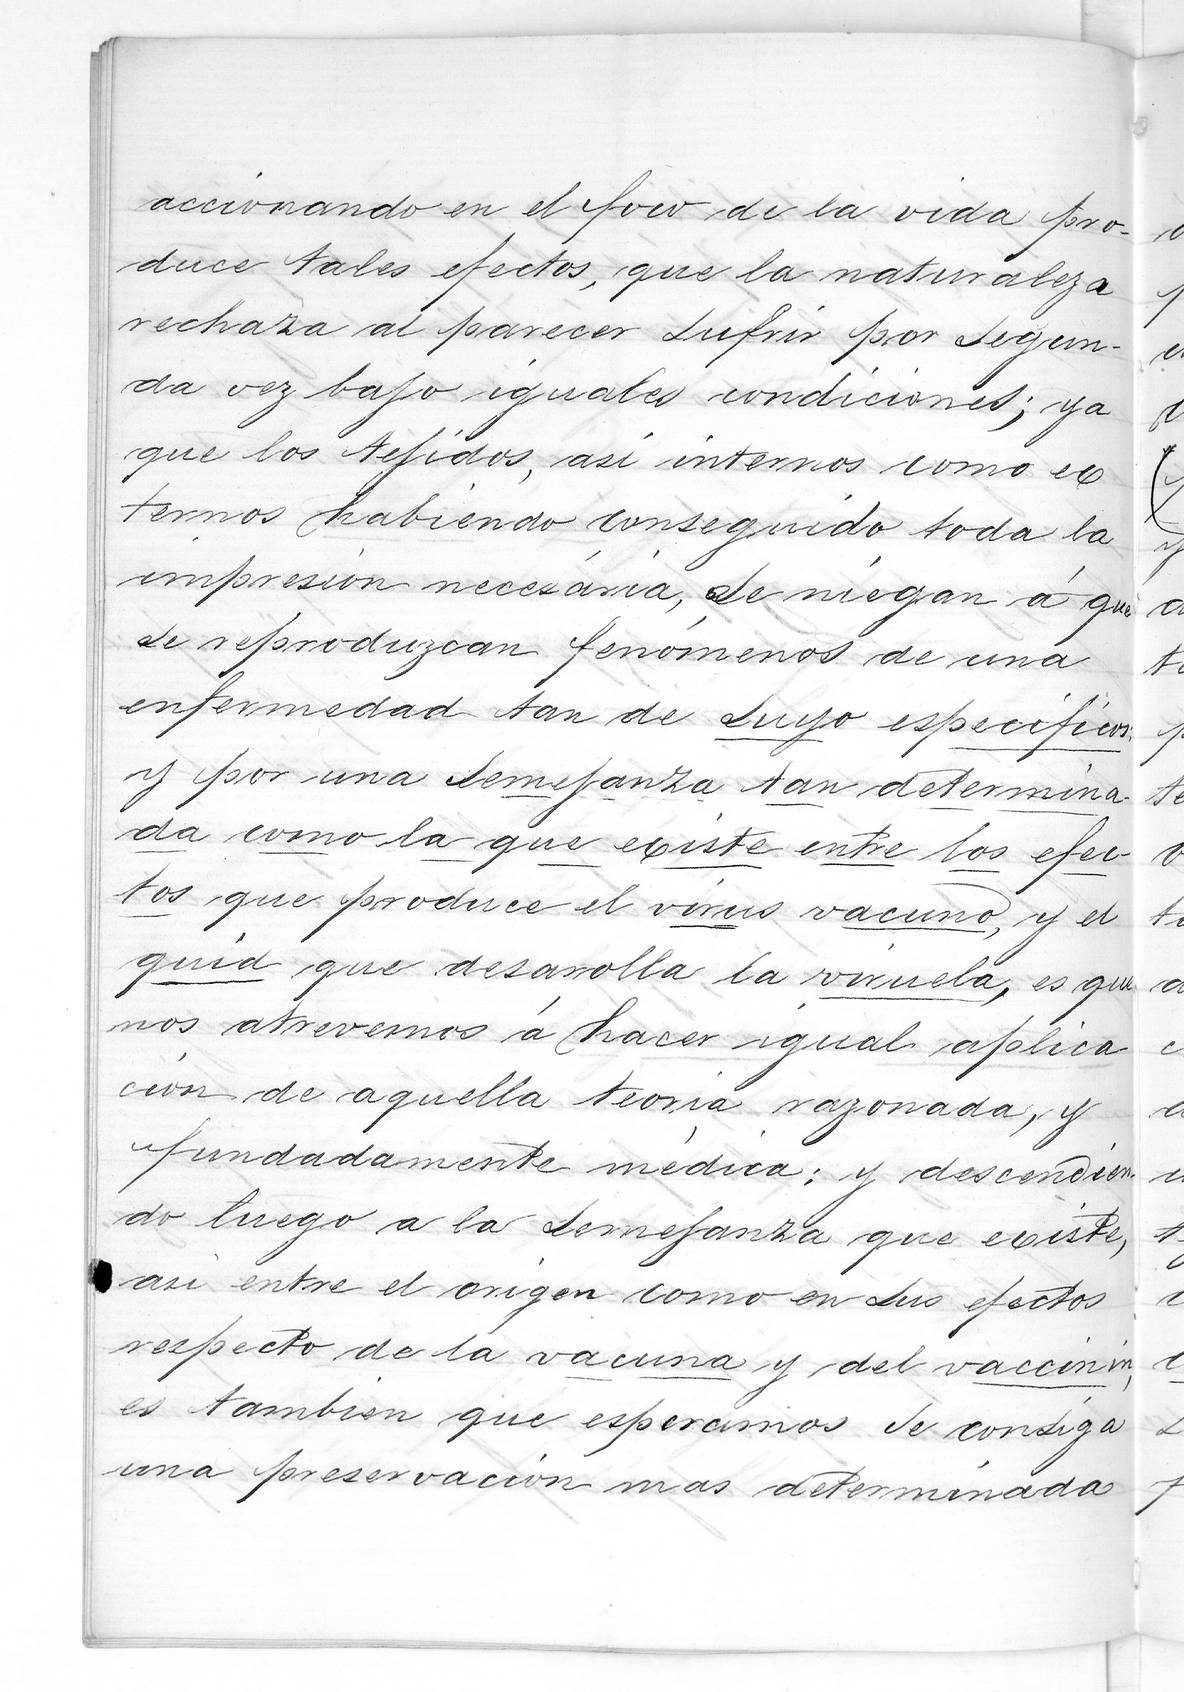 accionando en el foco de la vida pro-
duce tales efectos, que la naturaleza
rechaza al parecer sufrir por segun-
da vez bajo iguales condiciones; ya
que los tejidos, asi internos como ex
ternos habiendo conseguido toda la
impresión necesária, se niegan á que
se reproduzcan fenómenos de una
enfermedad tan de suyo especificos,
y por una semejanza tan determina-
da como la que existe entre los efec-
tos que produce el virus vacuno, y el
quid que desarrolla la viruela, es que
nos atrevemos á hacer igual aplica
ción de aquella teoria razonada, y
fundadamente médica; y descendien-
do luego a la semejanza que existe,
asi entre el origen como en sus efectos
respecto de la vacuna y del vaccinin,
es tambien que esperamos se consiga
una preservación mas determinada